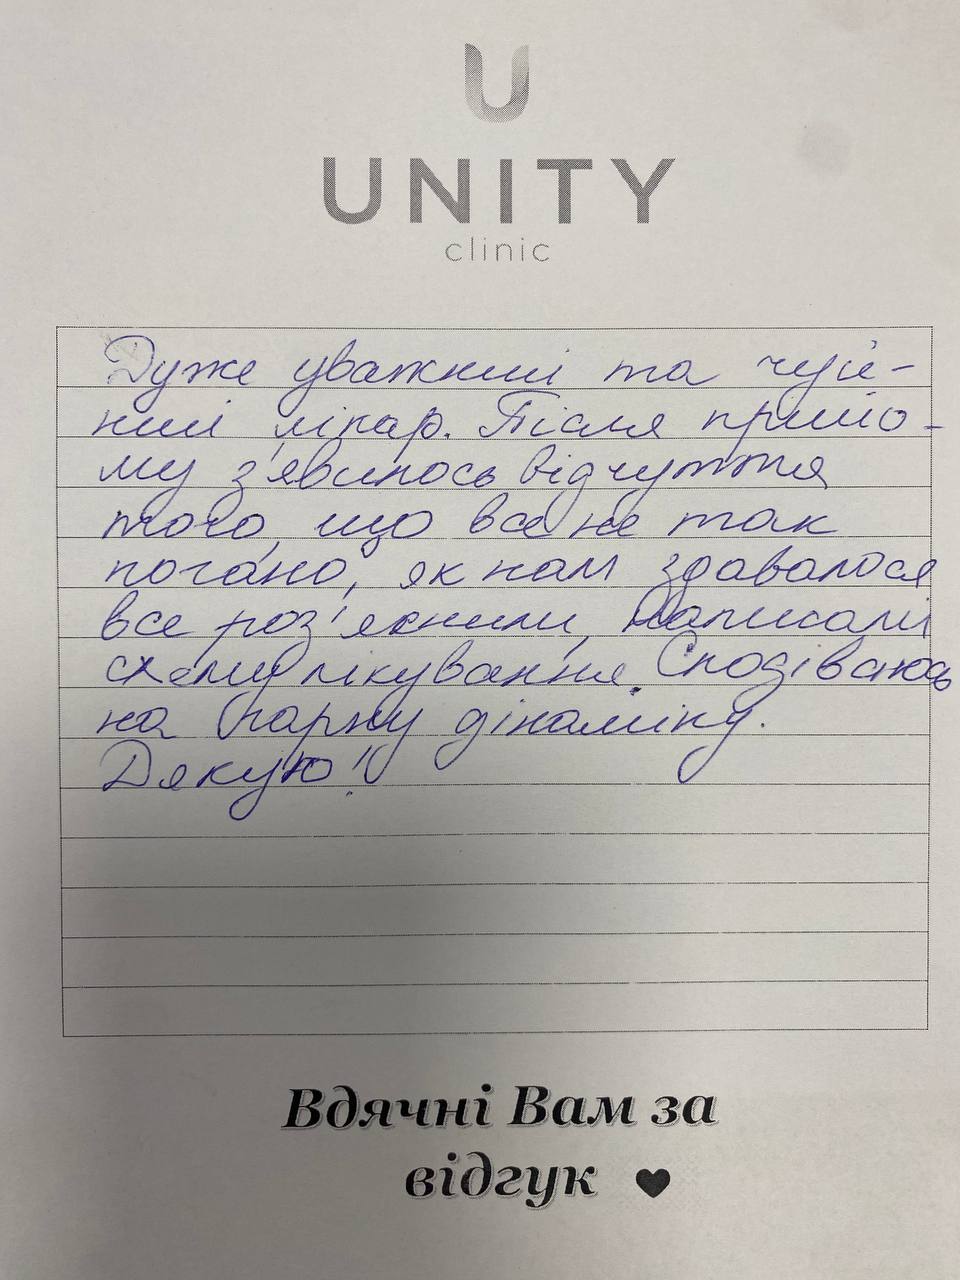 UNITY
clinic
Дуже уважний та чуй-
ний лікар. Після прийо-
му з'явилось відчуття
того, що все не так
погано, як нам здавалося
все роз'яснили, написали
схему лікування. Сподіваюсь
на гарну дінаміку.
Дякую!
Вдячні Вам за
відгук